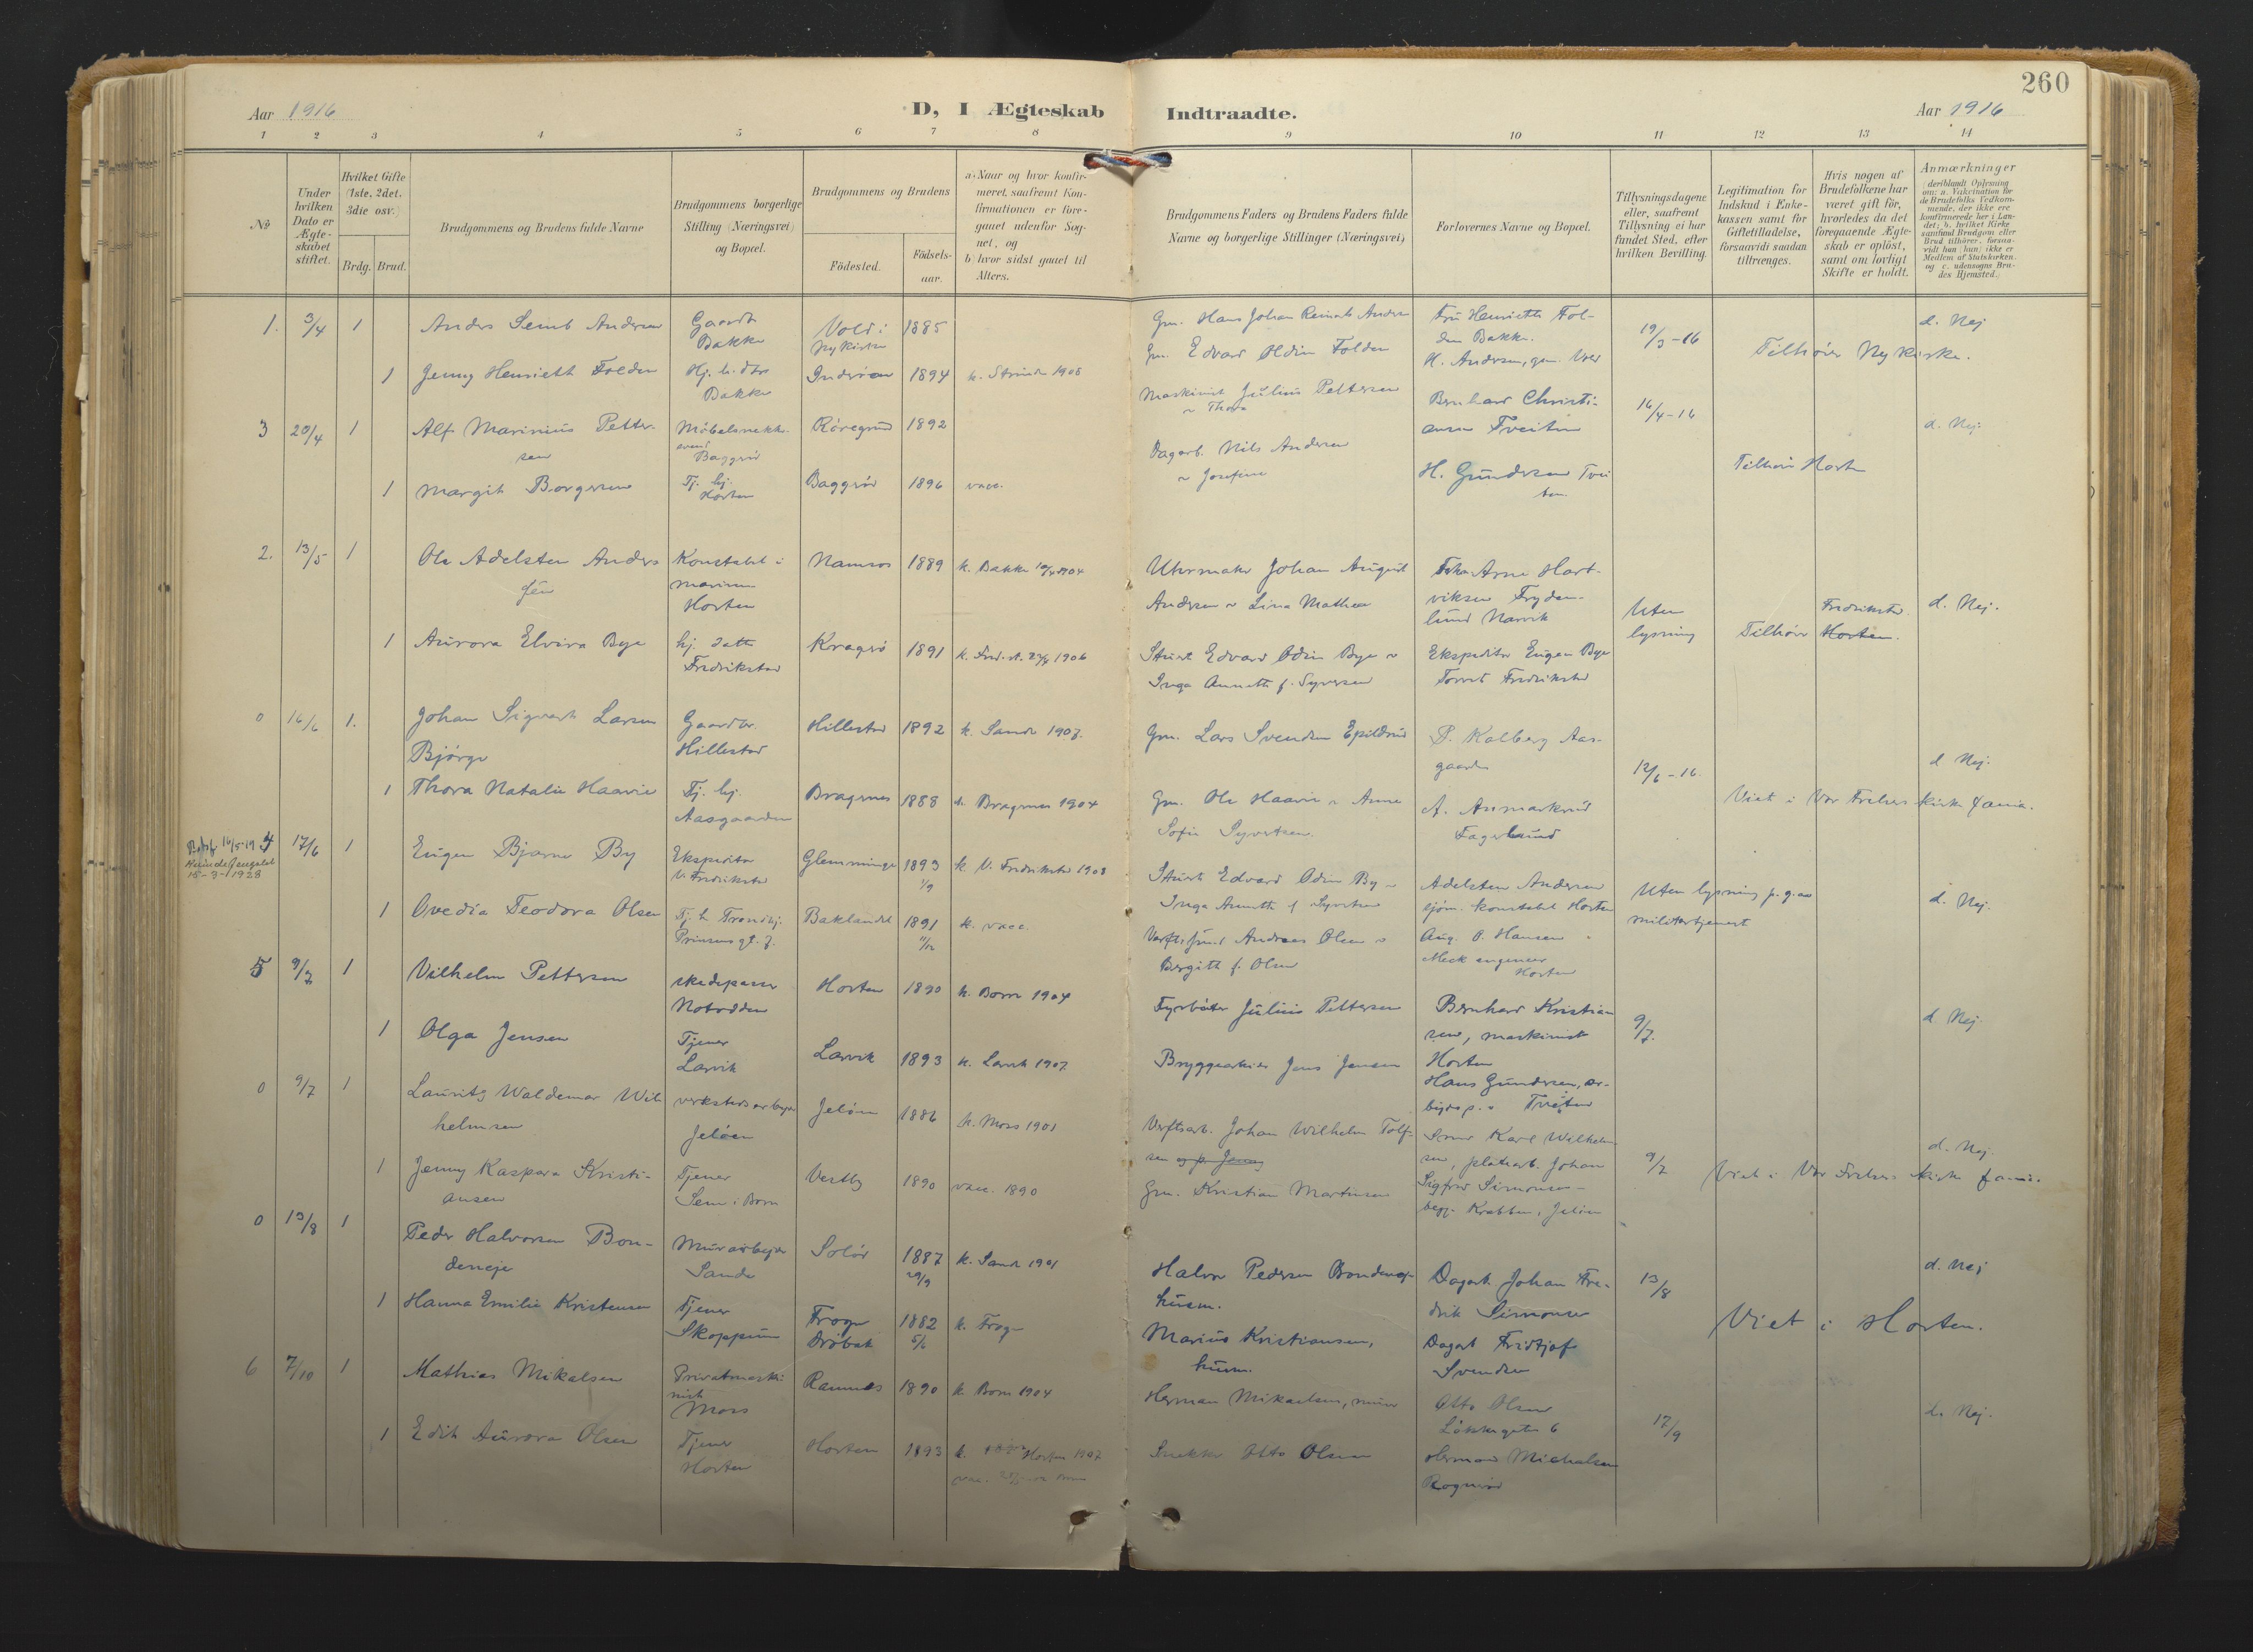 260
Aar 1916
D, I Ægteskab Indtraadte.
Aar 1916
1 2 3 4 5 6 7 8 9 10 11 12 13 14
No
Under hvilken Dato er Ægteskabet stiftet.
Hvilket Gifte (1ste, 2det, 3die osv.)
Brdg. Brud.
Brudgommens og Brudens fulde Navne
Brudgommens borgerlige Stilling (Næringsvei) og Bopæl.
Brudgommens og Brudens
Fødested.
Fødselsaar.
a) Naar og hvor konfirmeret, saafremt Konfirmationen er foregaaet udenfor Sognet, og
b) hvor sidst gaaet til Alters.
Brudgommens Faders og Brudens Faders fulde Navne og borgerlige Stillinger (Næringsvei)
Forlovernes Navne og Bopæl.
Tillysningsdagene eller, saafremt Tillysning ei har fundet Sted, efter hvilken Bevilling.
Legitimation for Indskud i Enkekassen samt for Giftetilladelse, forsaavidt saadan tiltrænges.
Hvis nogen af Brudefolkene har været gift før, hvorledes da det foregaaende Ægteskab er opløst, samt om lovligt Skifte er holdt.
Anmærkninger
1. 3/4 1 Anders Semb Andersen Gaardbr. Bakke Vold i Nykirke 1885
Gm. Hans Johan Reinert Andersen
Fru Henriette Folden Bakke.
H. Andersen, gm. Vold
19/3-16
Tilhører Nykirke.
d. Nej
1 Jenny Henriette Folden Hj. h. dtr Bakke Inderøen 1894 k. Strinda 1908
Gm. Edvard Oldin Folden
3 20/4 1 Alf Marinius Pettersen Møbelsnekker svend Baggerød Røregrund 1892
Maskinist Julius Pettersen
~ Thora
Bernhard Christiansen Tveiten
16/4-16
d. Nej.
1 Margit Borgersen Tj. hj. Horten Baggerød 1896 vacc.
Dagarb. Nils Andersen
~ Josefine
H. Gundersen Tveiten
Tilhører Horten
2. 13/5 1 Ole Adelsten Andersen Konstabel i marinen Horten Namsos 1889 k. Bakke 1904
Uhrmaker Johan August Andersen ~ Lina Mathea
Arne Hartviksen Frydenlund Narvik
Uten lysning
Tilhører Horten. Fredrikstad.
d. Nej.
1 Aurora Elvira Bye hj. datter Fredrikstad Kragerø 1891 k. Fred.st. 1906
Stuert Edvard Odin Bye ~
Inga Annette f. Syversen
Ekspeditør Eugen Bye
Torvet Fredrikstad
0 16/6 1. Johan Sigvart Larsen Bjørge Gaardbr. Hillestad Hillestad 1892 k. Sande 1907.
Gm. Lars Svendsen Epildrud
P. Kalberg Aasgaarden
12/6-16.
d Nej.
1 Thora Natalie Haavie Tj. hj. Aasgaarden Bragernes 1888 k. Bragernes 1904
Gm. Ole Haavie ~ Anne Sofie Syvertsen.
A. Asmarkrud Fagerlund
Viet i Vor Frelsers kirke X ania.
4 17/6 1 Eugen Bjarne By Ekspeditør V. Fredrikstad Glemminge 1893 1/9 k V. Fredrikstad 1908
15-3-1928
Stuert Edvard Odin By ~
Inga Annette f Syvertsen
Adelsten Andersen sjøm. konstabel Horten
Uten lysning p. g. av militærtjenest
d. Nej.
1 Ovedia Teodora Olsen Tj. h. Trondhj. Prinsensgt. 7. Baklandet 1891 11/12 k. vacc.
Andreas Olsen ~
Bergitte f. Olsen
Aug. O. Hansen
Mek engeneer Horten
5 9/7 1 Vilhelm Pettersen Notodden Horten 1890 k. Borre 1904
Fyrbøter Julius Pettersen
Bernhard Kristiansen, maskinist Horten
9/7.
d Nej.
1 Olga Jensen Tjener Larvik Larvik 1893 k. Larvik 1907.
Bryggearbeider Jens Jensen
Hans Gundersen, Tveiten
0 9/7 1 Lauritz Waldemar Wilhelmsen verkstedsarbeider Jeløen Jeløen 1886 k. Moss 1901
Verftsarb. Johan Wilhelm Tolfsen
Karl Wilhelmsen, platearb. Johan Sigfred Simonsen - begge Krabben, Jeløen
9/7
Viet i Vor Frelsers kirke
d. Nej.
1 Jenny Kaspara Kristiansen Tjener Sem i Borre Vestby 1890 vacc. 1890
Gm. Kristian Martinsen
0 13/8 1 Peder Halvorsen Bondeneje Murarbeider Sande Solør 1887 29/9 k. Sande 1901
Halvor Pedersen Bondeneje husm.
Dagarb Johan Fredrik Simonsen
13/8
Viet i Horten.
d. Nej
1 Hanna Emilie Kristensen Tjener Skoppum Frogn Drøbak 1882 5/6 k. Frogn
Marius Kristiansen, husm.
Dagarb Fridtjof Svendsen
6 7/10 1 Mathias Mikalsen Privatmaskinist Moss Ramnes 1890 k Borre 1904
Herman Mikaelsen, murer
Otto Olsen Løkkegaten 6
17/9
d. Nej.
1 Edit Aurora Olsen Tjener Horten Horten 1893 k. Horten 1907
Snekker Otto Olsen
Herman Michalsen Rognerød